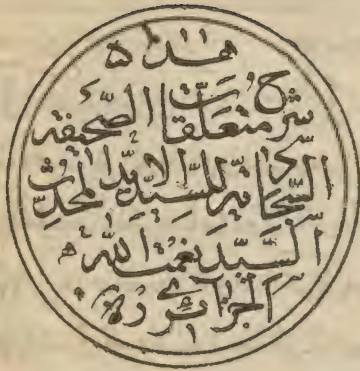 هذا
شرح متعلقات الصّحيفة
السجادية للسيد الايد المحدث
السّيد نعمت الله
الجزائري ره